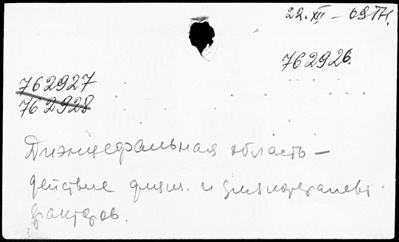 22.XII – 09ТН.
762926.
762927
762928
Диэнцефальная область –
действие физич. и физиотерапевт.
факторов.